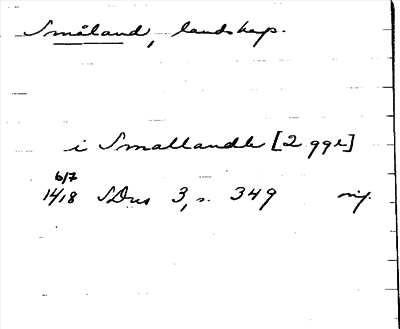 Småland, landskap.
i Smallande [2 ggr]
6/7
14/18 SDns 3, s. 349 orig.